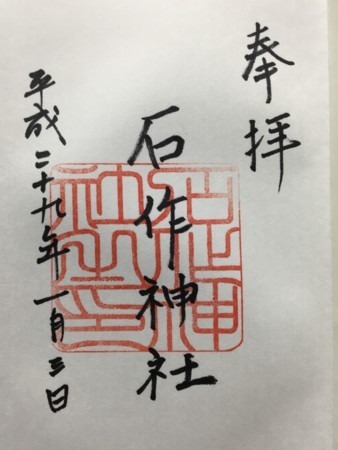 奉拝
石作神社
平成二十九年一月三日